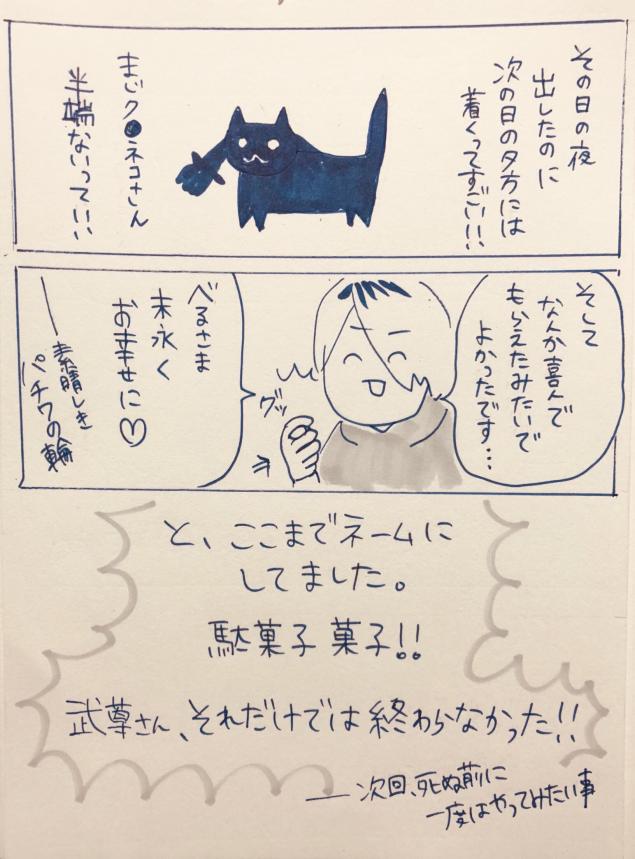 その日の夜
出したのに
次の日の夕方には
着くってすごい!!
まじク●ネコさん
半端ないっていい
そして
なんか喜んで
もらえたみたいで
よかったです…
グッ
べるさま
末永く
お幸せに♡
素晴しき
パチワの輪
と、ここまでネームに
してました。
駄菓子 菓子!!
武尊さん、それだけでは終わらなかった!!
次回、死ぬ前に
一度はやってみたい事